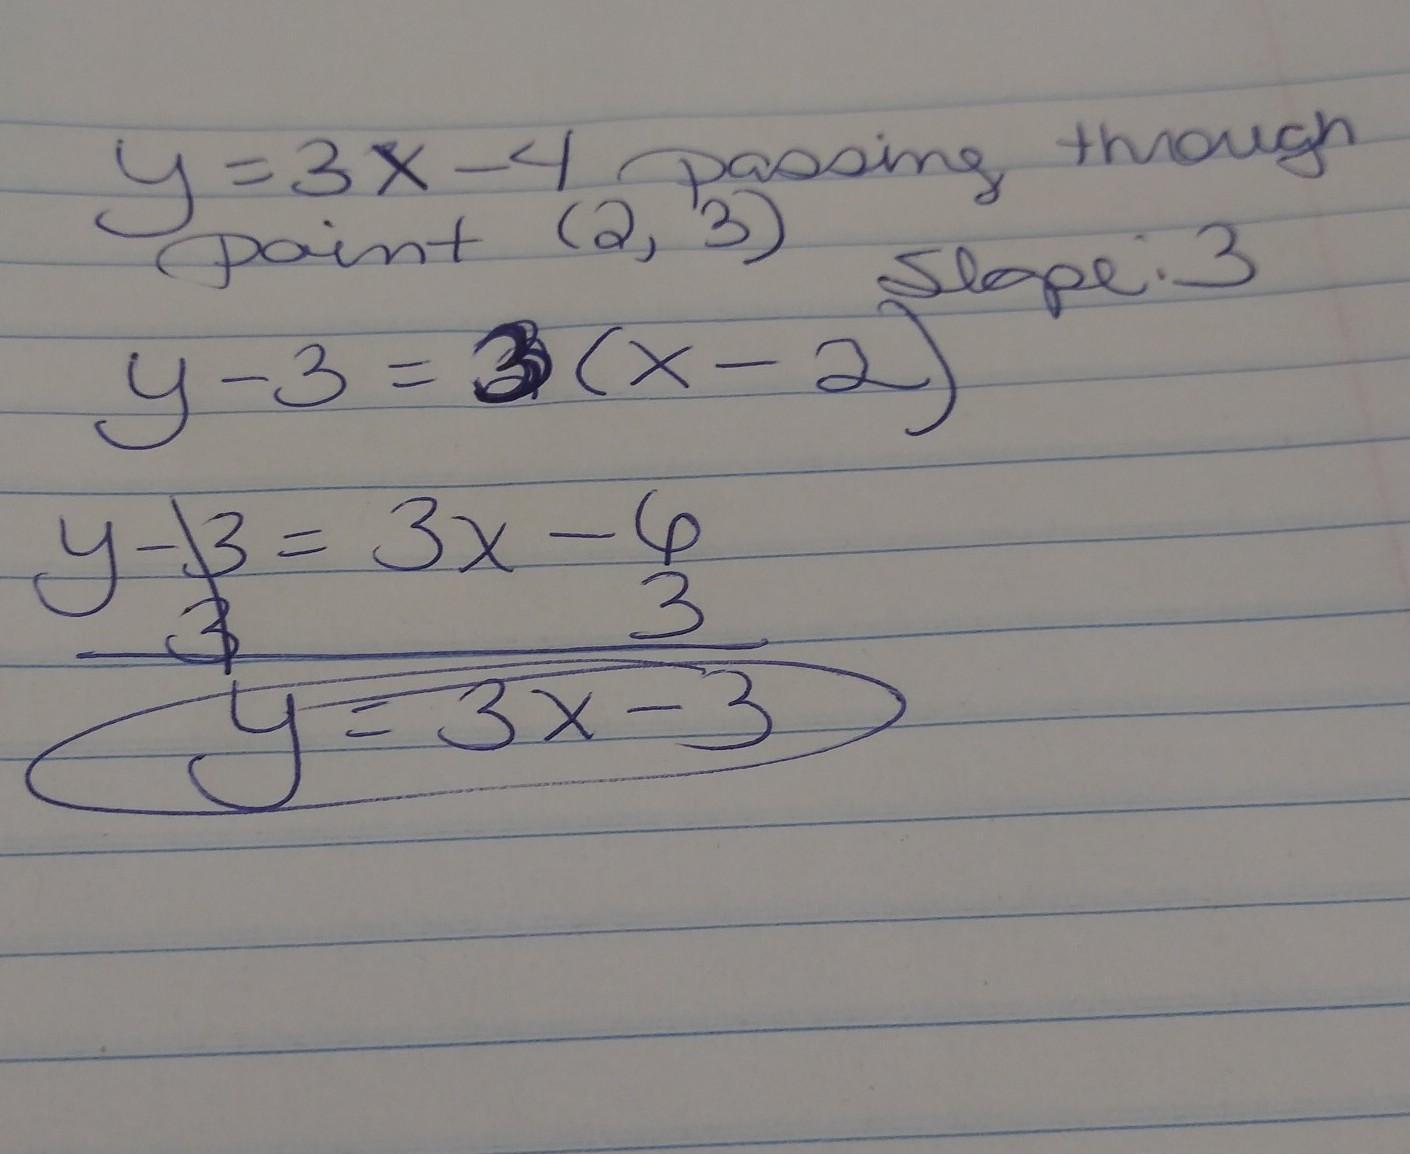 y = 3x - 4 passing through
point (2, 3)
Slope: 3
y - 3 = 3 (x - 2)
y - 3 = 3x - 6
3 3
y = 3x - 3